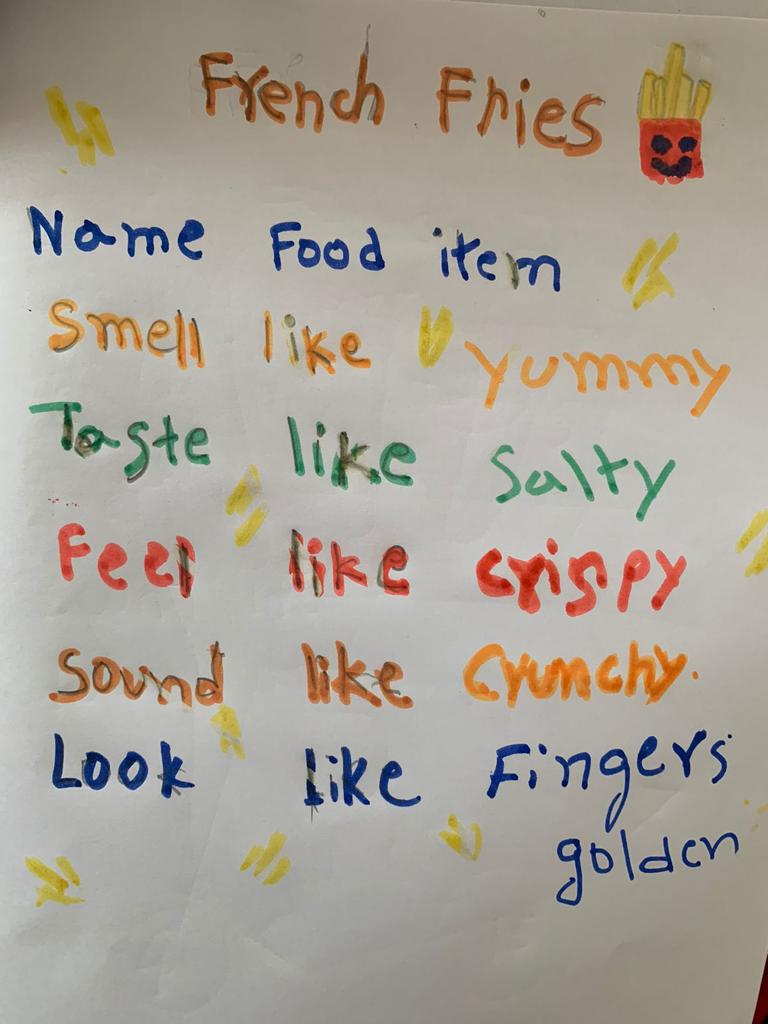 French Fries
Name Food item
Smell like yummy
Taste like Salty
Feel like crispy
Sound like Crunchy.
Look like Fingers
golden